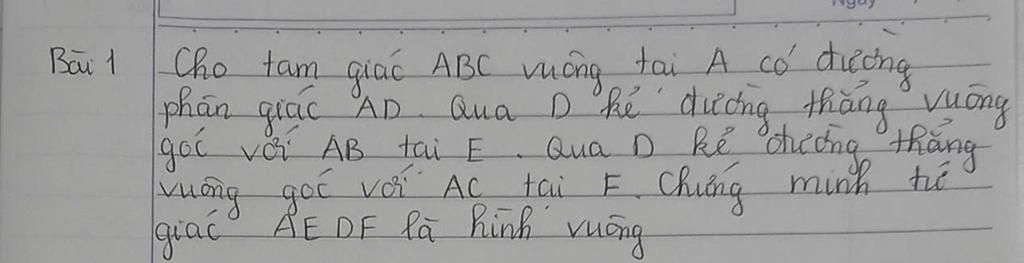 Ngày
Bài 1 Cho tam giác ABC vuông tai A có đường
phân giác AD. Qua D kẻ đường thẳng vuông
góc với AB tai E. Qua D kẻ đường thẳng
vuông góc với AC tai F. Chứng minh tứ
giác AEDF là hình vuông